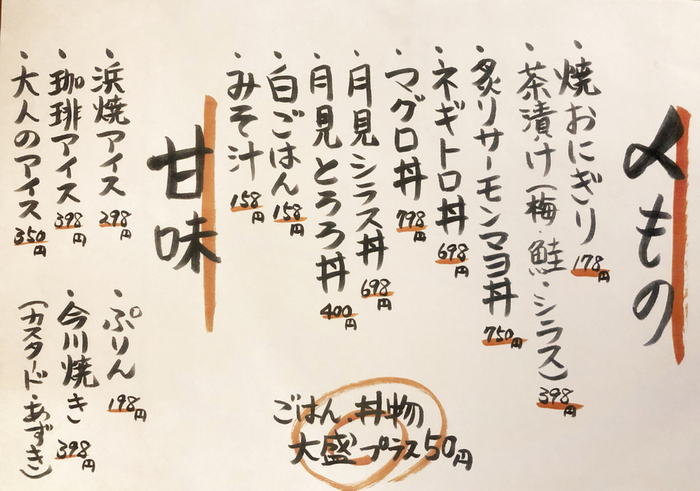 〆もの
・焼おにぎり 178円
・茶漬け(梅・鮭・シラス) 398円
・炙りサーモンマヨ丼 750円
・ネギトロ丼 698円
・マグロ丼 798円
・月見シラス丼 698円
・月見とろろ丼 400円
・白ごはん 158円
・みそ汁 158円
ごはん、丼物
大盛プラス50円
甘味
・浜焼アイス 298円
・珈琲アイス 398円
・大人のアイス 350円
・ぷりん 198円
・今川焼き 398円
(カスタード・あずき)